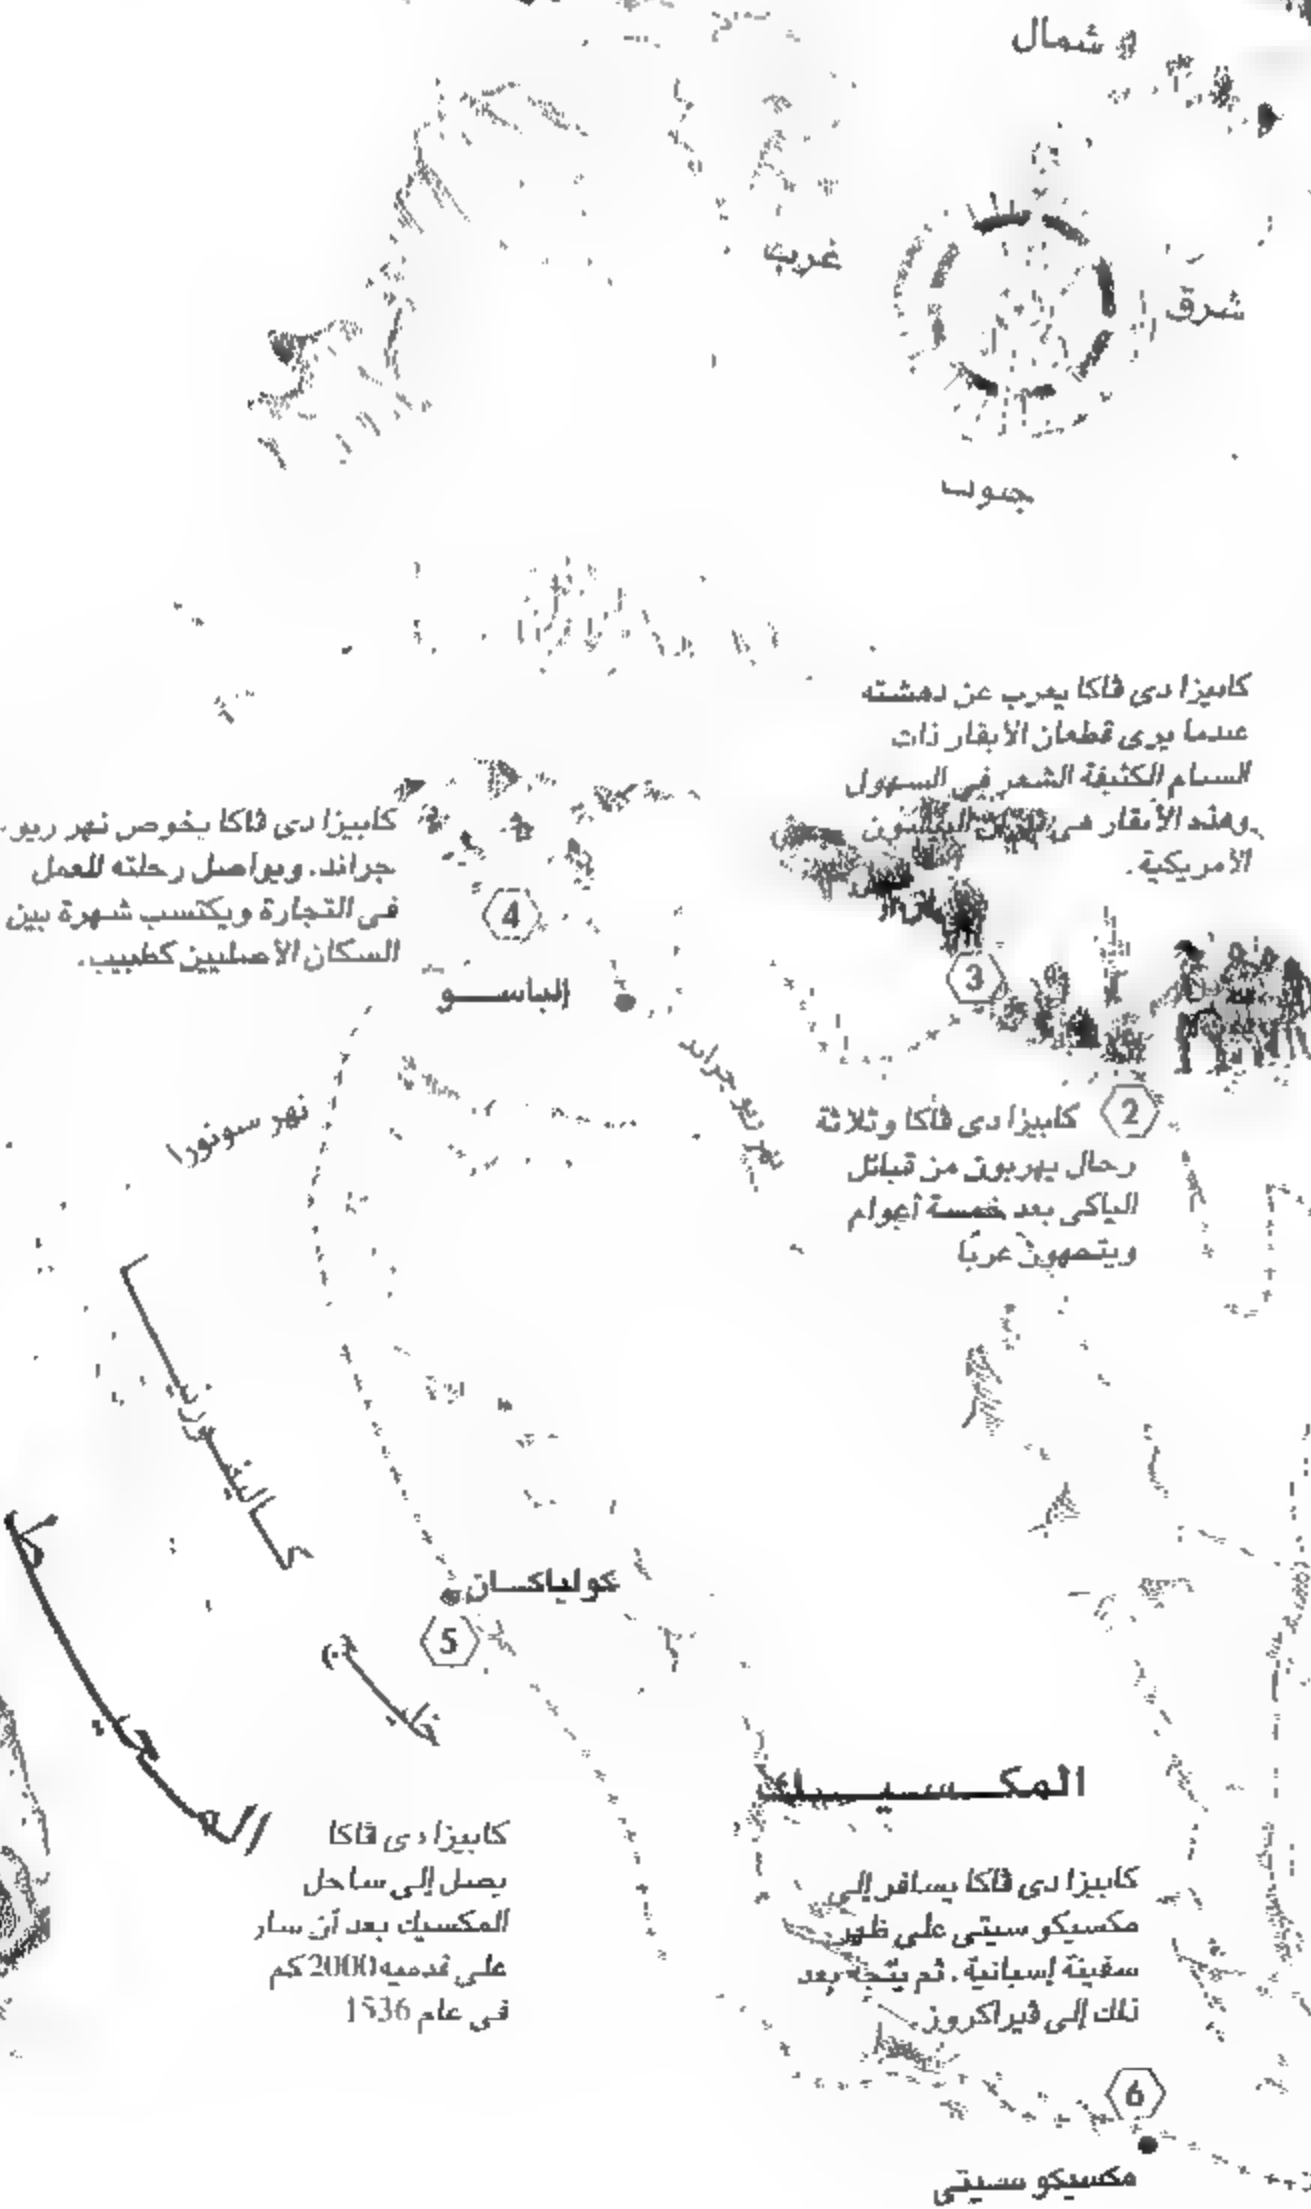 شمال
غرب
شرق
جنوب
كابيزا دى ڤاكا يعرب عن دهشته
عندما يرى قطعان الأبقار ذات
السنام الكثيفة الشعر فى السهول
وهذه الأبقار هى البيسون
الأمريكية.
3
كابيزا دى ڤاكا يخوص نهر ريو
جراند، ويواصل رحلته للعمل
فى التجارة ويكتسب شهرة بين
السكان الأصليين كطبيب.
4
الباســـو
نهر ريو جراند
نهر سونورا
2
كابيزا دى ڤاكا وثلاثة
رجال يهربون من قبائل
الياكى بعد خمسة أعوام
ويتجهون غربًا
كـاليفـورنيـا
خليـج
المحيـط
كولياكســان
5
المكــســيــك
كابيزا دى ڤاكا
يصل إلى ساحل
المكسيك بعد أن سار
على قدميه 2000 كم
فى عام 1536
كابيزا دى ڤاكا يسافر إلى
مكسيكو سيتى على ظهر
سفينة إسبانية، ثم يتجه بعد
ذلك إلى ڤيراكروز
6
مكسيكو سيتى